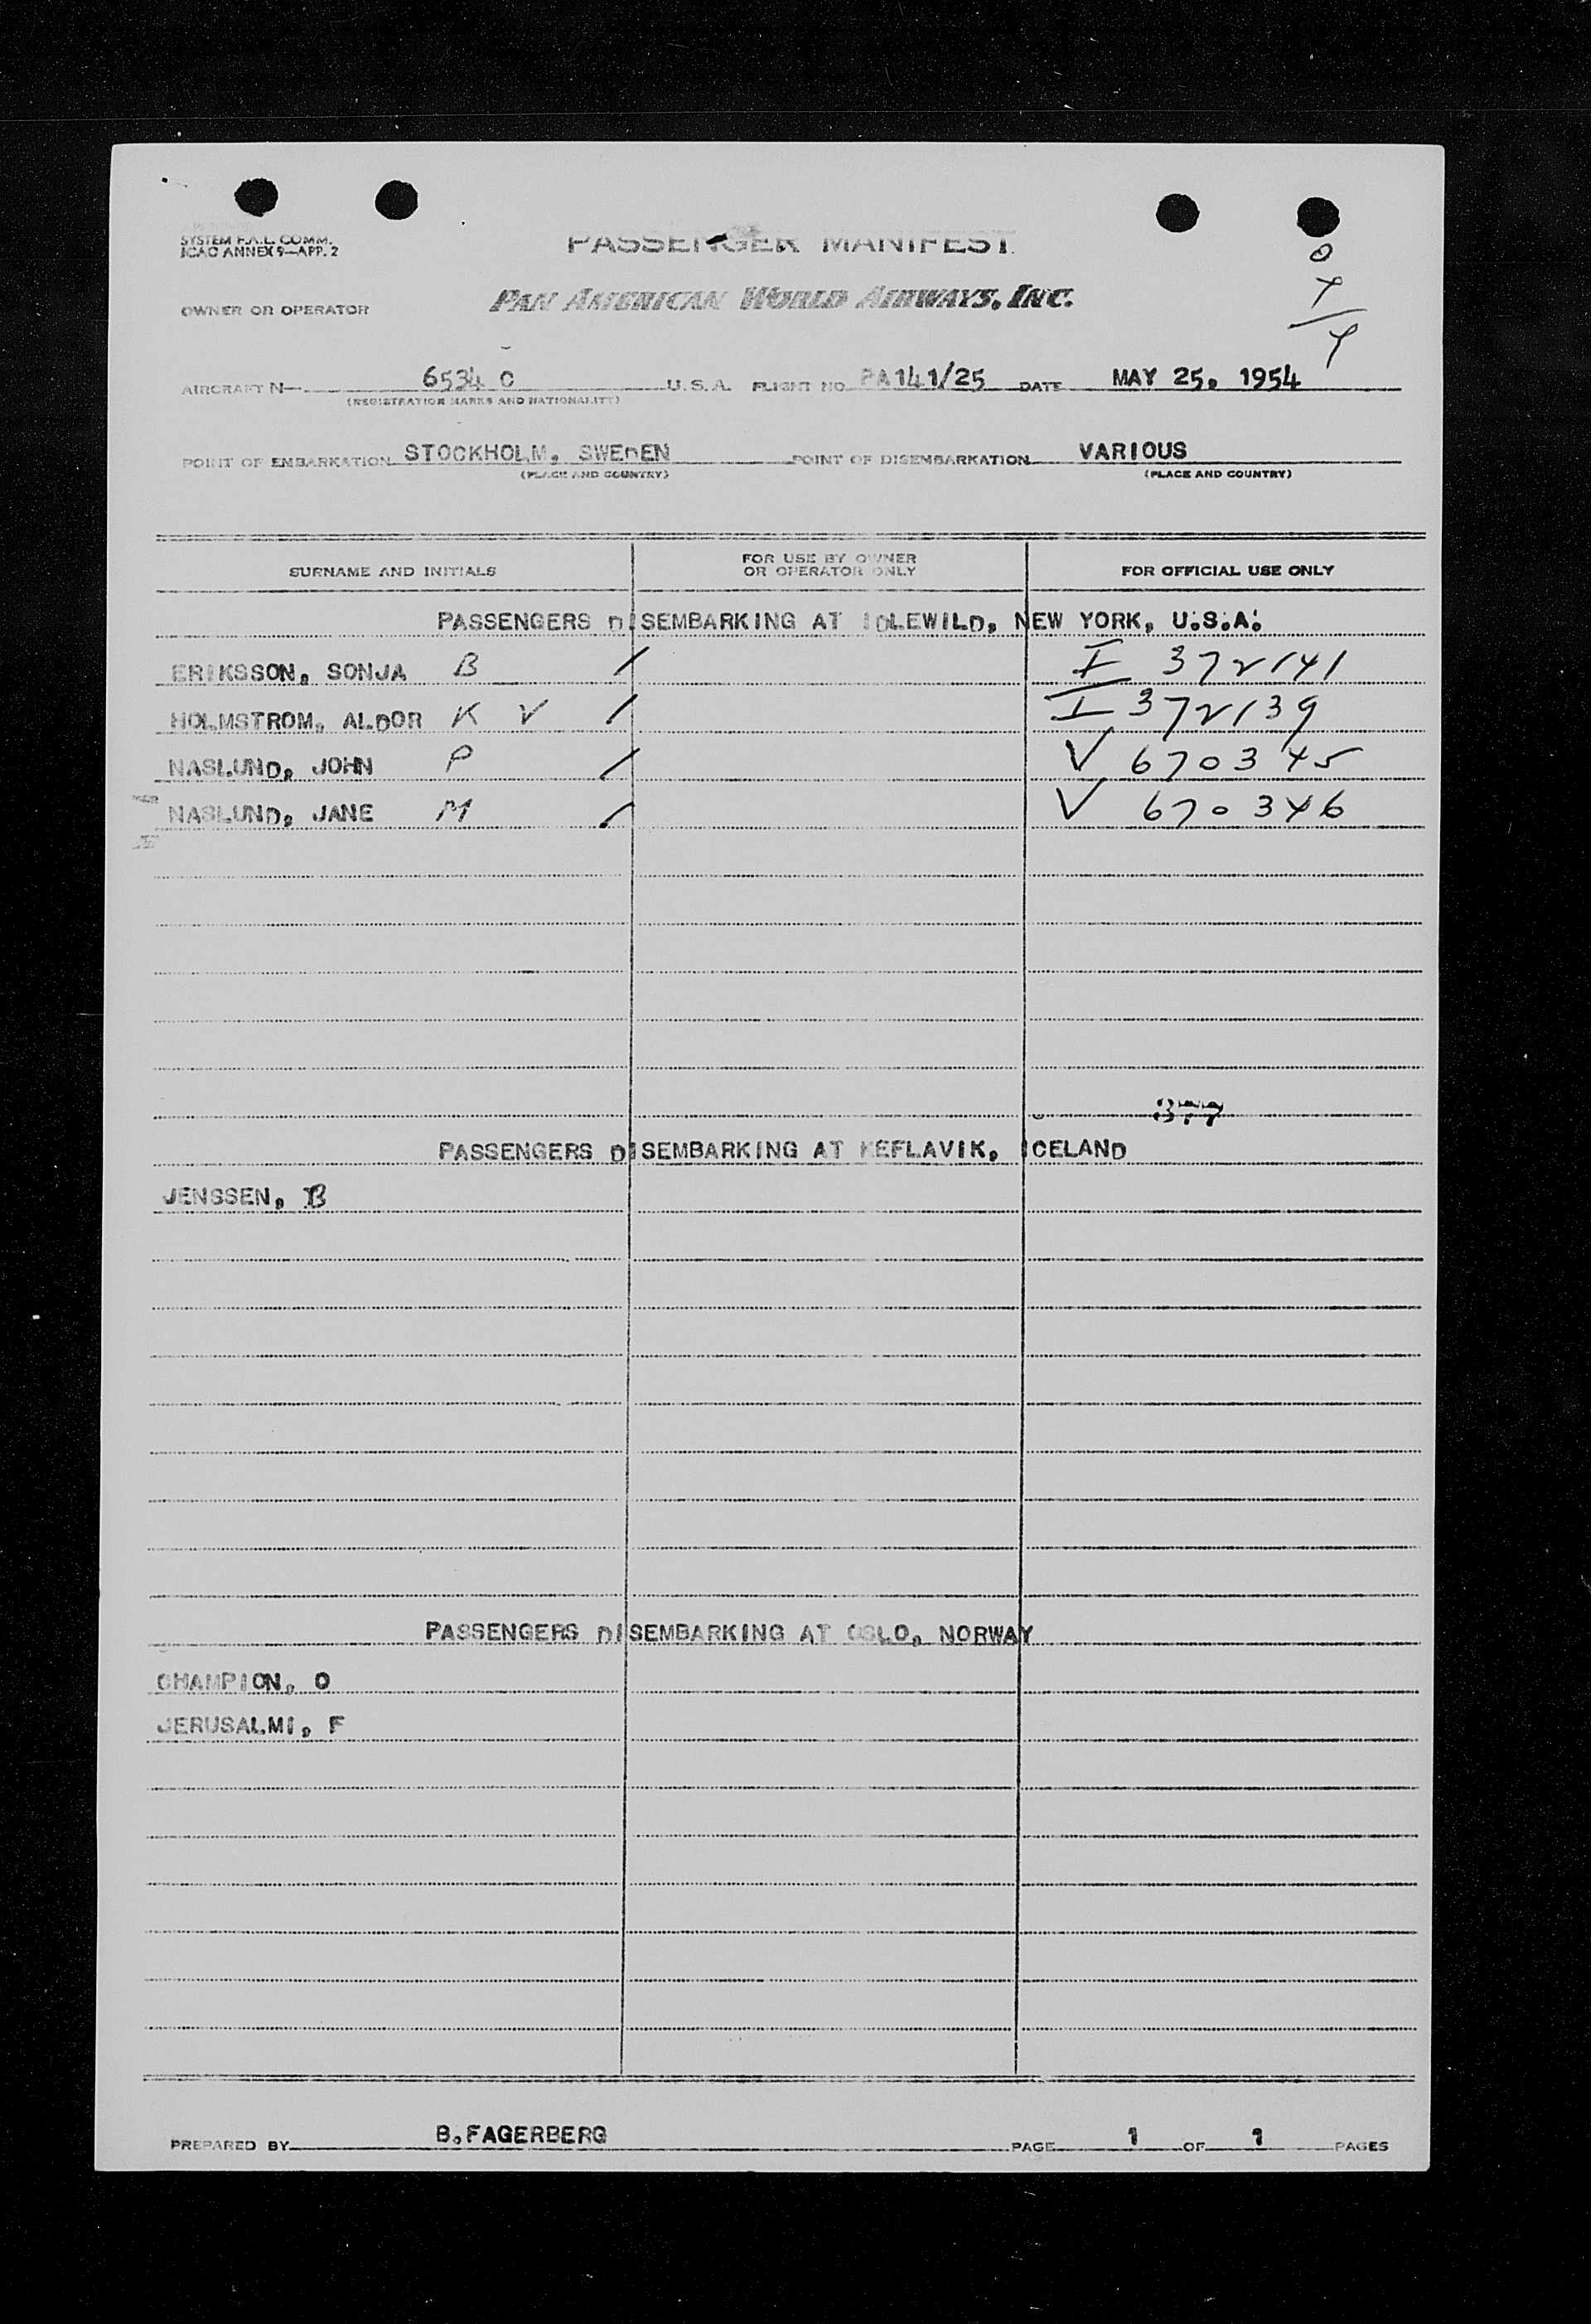 SYSTEM F.A.L. COMM.
ICAO ANNEX 9—APP. 2
PASSENGER MANIFEST
0
4
4
OWNER OR OPERATOR PAN AMERICAN WORLD AIRWAYS, INC.
AIRCRAFT N— 6534 C U.S.A. FLIGHT NO. PA141/25 DATE MAY 25, 1954
(REGISTRATION MARKS AND NATIONALITY)
POINT OF EMBARKATION STOCKHOLM, SWEDEN POINT OF DISEMBARKATION VARIOUS
(PLACE AND COUNTRY) (PLACE AND COUNTRY)
SURNAME AND INITIALS FOR USE BY OWNER OR OPERATOR ONLY FOR OFFICIAL USE ONLY
PASSENGERS DISEMBARKING AT IDLEWILD, NEW YORK, U.S.A.
ERIKSSON, SONJA B / I 372141
HOLMSTROM, ALDOR K V / I 372139
NASLUND, JOHN P / V 670345
NASLUND, JANE M / V 670346
377
PASSENGERS DISEMBARKING AT KEFLAVIK, ICELAND
JENSSEN, B
PASSENGERS DISEMBARKING AT OSLO, NORWAY
CHAMPION, O
JERUSALMI, F
PREPARED BY B. FAGERBERG PAGE 1 OF 1 PAGES